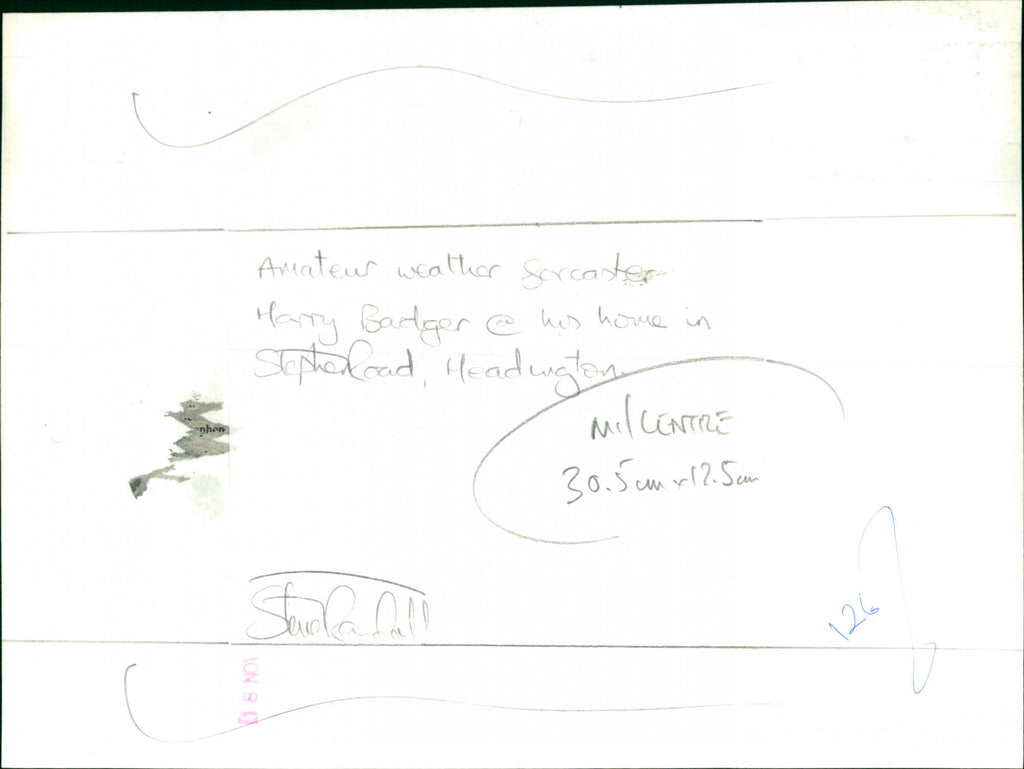 Amateur weather forcaster
Harry Badger @ his home in
Stephen Road, Headington.
phen
M1/CENTRE
30.5cm x 12.5cm
126
Steve Randall
08 NOV